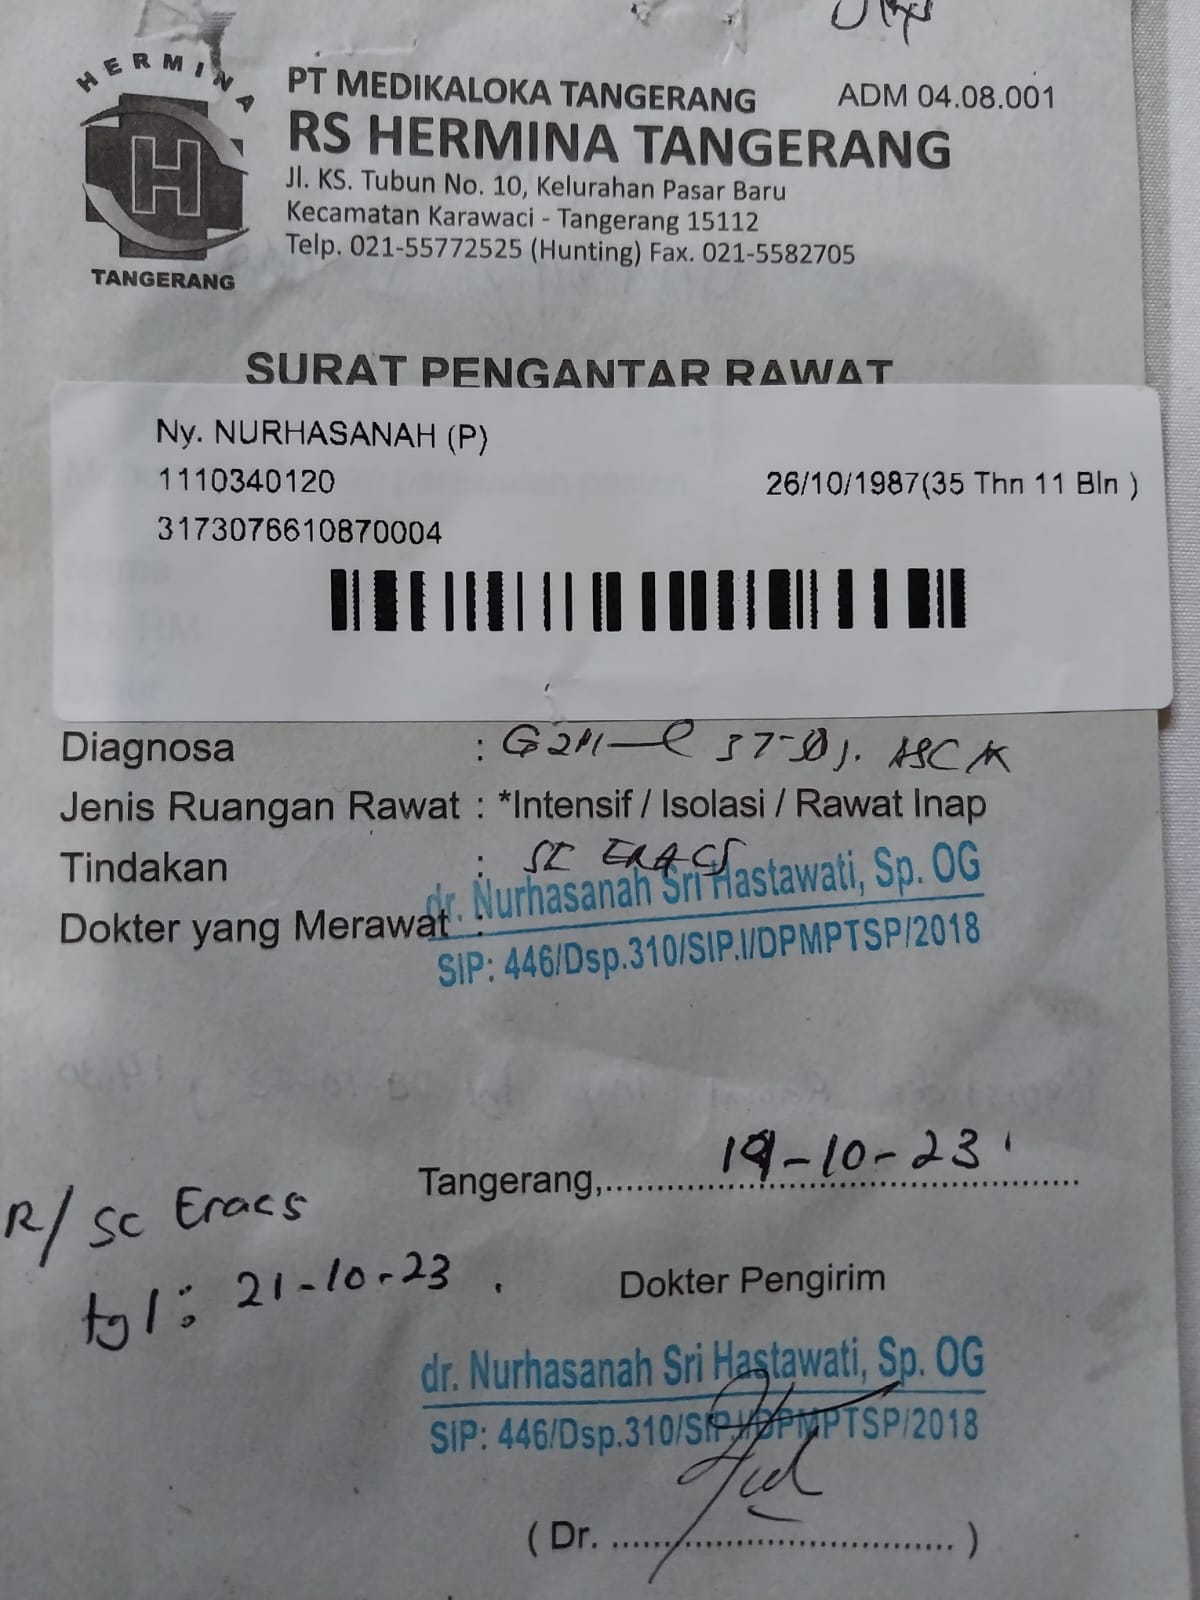 HERMINA
TANGERANG
PT MEDIKALOKA TANGERANG
ADM 04.08.001
RS HERMINA TANGERANG
Jl. KS. Tubun No. 10, Kelurahan Pasar Baru
Kecamatan Karawaci - Tangerang 15112
Telp. 021-55772525 (Hunting) Fax. 021-5582705
SURAT PENGANTAR RAWAT
Ny. NURHASANAH (P)
1110340120 26/10/1987(35 Thn 11 Bln )
3173076610870004
Diagnosa :
Jenis Ruangan Rawat : *Intensif / Isolasi / Rawat Inap
Tindakan : SC ERACS
dr. Nurhasanah Sri Hastawati, Sp. OG
Dokter yang Merawat :
SIP: 446/Dsp.310/SIP.I/DPMPTSP/2018
Tangerang, 19-10-23
R/ SC Eracs
tgl : 21-10-23 .
Dokter Pengirim
dr. Nurhasanah Sri Hastawati, Sp. OG
SIP: 446/Dsp.310/SIP.I/DPMPTSP/2018
( Dr. .................................... )